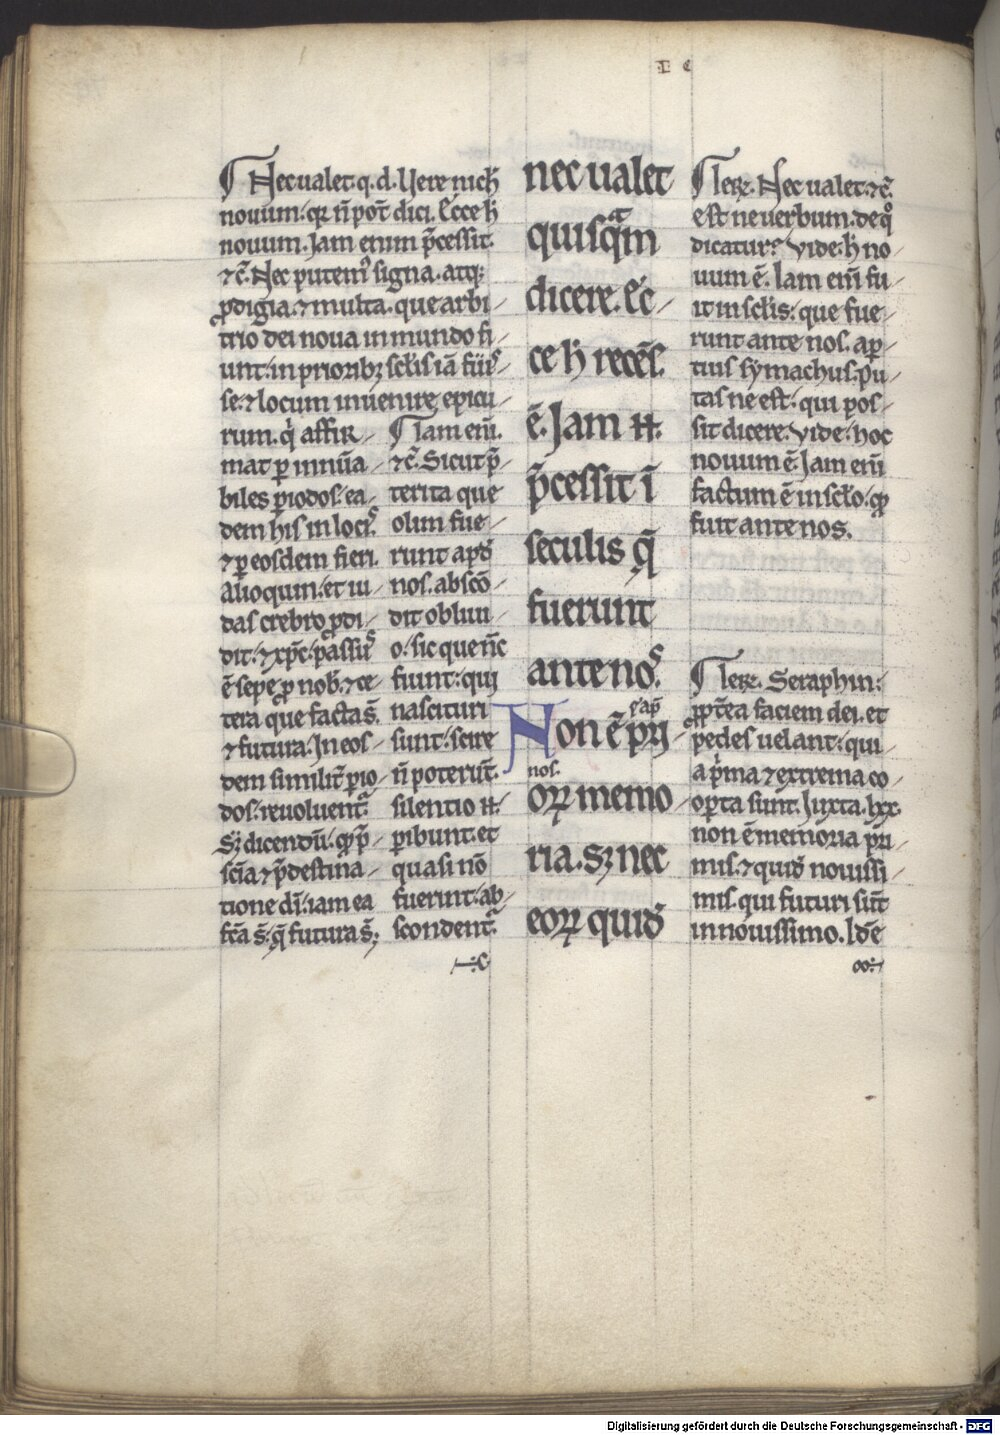 I C
¶ Nec ualet. q. d. Uere nich̄
nouum. qꝛ n̄ pot̄ dici. Ecce h̄
nouum. Jam enim p̄cessit.
⁊c̄. Nec putemꝰ signa. atqꝫ
ꝓdigia. ⁊ multa. que arbi-
trio dei noua in mundo fi-
unt. in prioribꝫ scl̄is iā
se. ⁊ locum inuenire epicu-
rum. qͥ affir-
mat ꝑ innūa-
biles ꝑiodos. ea-
dem his in locis
⁊ ꝑ eosdem fieri.
Alioquin. et iu-
das crebro ꝓdi-
dit. ⁊ xp̄c. passus
ē sepe ꝓ nob̄. ⁊ ce-
tera que facta s̄.
⁊ futura. In eos-
dem similit̄ ꝑio-
dos. reuoluent᷑.
Sꝫ dicendū. ꝙ p̄-
scīa ⁊ p̄destina-
tione dī. iam ea
fc̄a s̄. q̄ futura s̄.
¶ Iam eni̅.
⁊c̄. Sicut p̄-
terita que
olim fue-
runt apud
nos. abscō-
dit obliui-
o. sic que nc̄
fiunt. qui
nascituri
sunt. scire
n̄ poterūt.
silentio
ꝑibunt. et
quasi nō
fuerint. ab-
scondent᷑.
nec ualet
quisqͣm
dicere. Ec-
ce h̄ recēs.
ē. Jam
p̄cessit ī
seculis q̄
fuerunt
ante nos.
Non ē pri-
nos.
oꝝ memo-
ria. Sꝫ nec
eoꝝ quid
¶ Ier. Nec ualet. ⁊c̄.
est ne uerbum. de qͦ
dicatur? Vide. h̄ no-
uum ē. Iam eni̅ fu-
it in scl̄is. que fue-
runt ante nos. aꝑ-
tius symachus. Pu-
tas ne est. qui pos-
sit dicere. Vide. hoc
nouum ē. Jam eni̅
factum ē in scl̄o. ꝙ
fuit ante nos.
¶ Ier. Seraphin.
ꝓpt̄ea faciem dei. et
pedes uelant. qui-
a pͥma ⁊ extrema co-
oꝑta sunt. Juxta. lxx.
non ē memoria pri-
mis. ⁊ quid nouissi-
mis. qui futuri sūt
in nouissimo. Idē
Digitalisierung gefördert durch die Deutsche Forschungsgemeinschaft - DFG